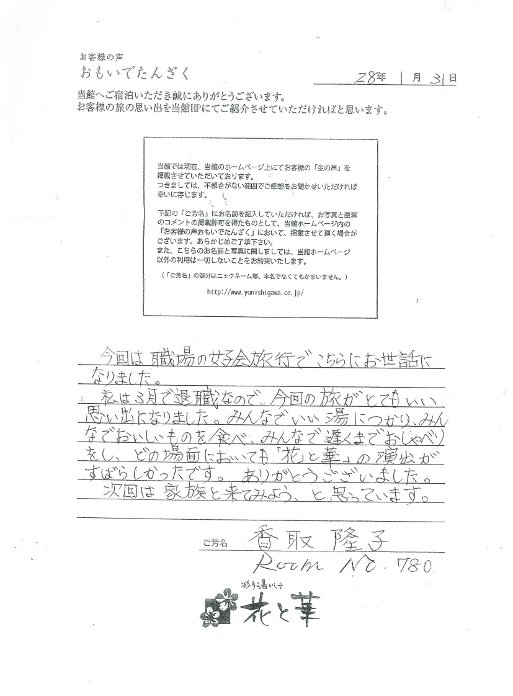 お客様の声
おもいでたんざく
28年 1月 31日
当館へご宿泊いただき誠にありがとうございます。
お客様の旅の思い出を当館HPにてご紹介させていただければと思います。
当館では現在、当館のホームページ上にてお客様の「生の声」を
掲載させていただいております。
つきましては、不都合がない範囲でご感想をお聞かせいただければ
幸いに存じます。
下記の「ご芳名」にお名前を記入していただければ、お写真と直筆
のコメントの掲載許可を得たものとして、当館ホームページ内の
「お客様の声おもいでたんざく」において、掲載させて頂く場合が
ございます。あらかじめご了承下さい。
また、こちらのお名前と写真に関しましては、当館ホームページ
以外の利用は一切しないことをお約束いたします。
(「ご芳名」の部分はニックネーム等、本名でなくてもかまいません。)
http://www.yunishigawa.co.jp/
今回は職場の女子会旅行でこちらにお世話に
なりました。
私は3月で退職なので、今回の旅がとてもいい
思い出になりました。みんなでいい湯につかり、みん
なでおいしいものを食べ、みんなで遅くまでおしゃべり
をし、どの場面においても「花と華」の演出が
すばらしかったです。ありがとうございました。
次回は家族と来てみよう、と思っています。
ご芳名 香取 隆子
Room No. 780
花と華